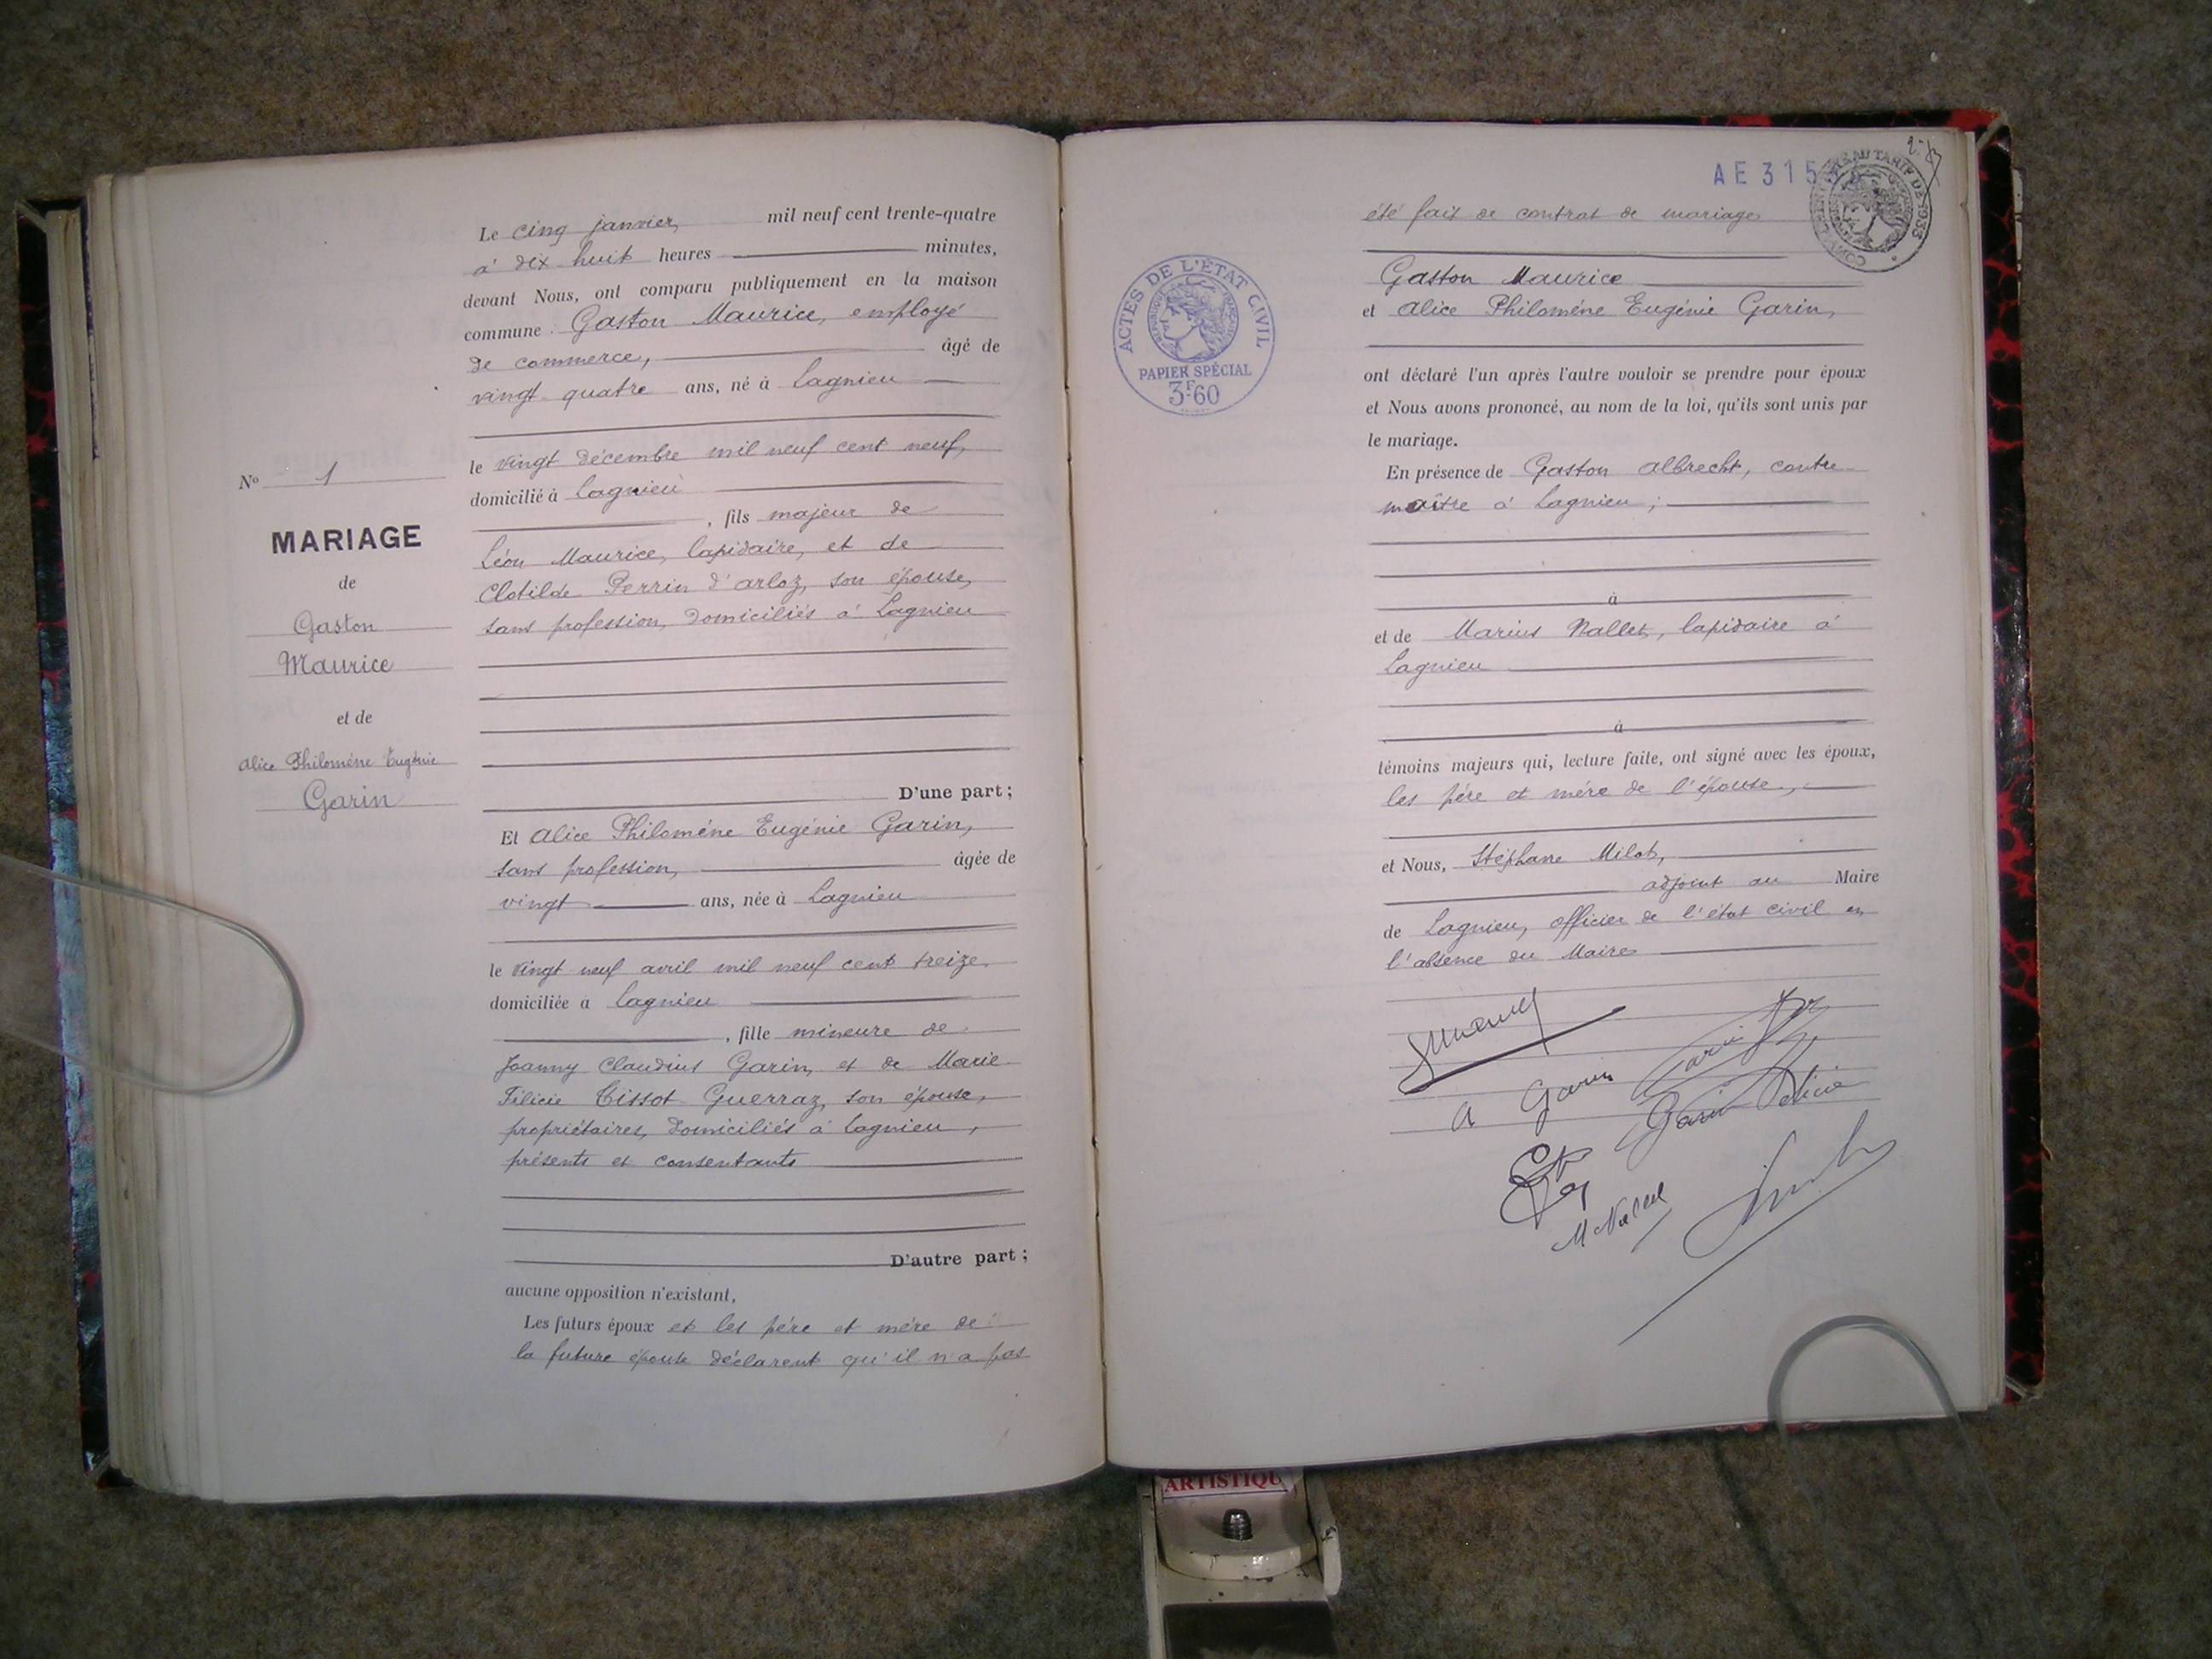 Le cinq janvier, mil neuf cent trente-quatre
à dix huit heures minutes,
devant Nous, ont comparu publiquement en la maison
commune. Gaston Maurice, employé
de commerce, âgé de
vingt-quatre ans, né à Lagnieu
le vingt décembre mil neuf cent neuf,
domicilié à Lagnieu
, fils majeur de
Léon Maurice, lapidaire, et de
Clotilde Perrin d'arloz, son épouse,
sans profession, domiciliés à Lagnieu
D'une part;
Et Alice Philomène Eugénie Garin,
sans profession, âgée de
vingt ans, née à Lagnieu
le vingt-neuf avril mil neuf cent treize
domiciliée à Lagnieu
, fille mineure de
Joanny Claudius Garin, et de Marie
Félicie Tissot Guerraz, son épouse,
propriétaires, domiciliés à Lagnieu,
présents et consentants
D'autre part;
aucune opposition n'existant,
Les futurs époux et les père et mère de
la future épouse déclarent qu'il n'a pas
No 1
MARIAGE
de
Gaston
Maurice
et de
Alice Philomène Eugénie
Garin
AE 315
été fait de contrat de mariage
Gaston Maurice
et Alice Philomène Eugénie Garin,
ont déclaré l'un après l'autre vouloir se prendre pour époux
et Nous avons prononcé, au nom de la loi, qu'ils sont unis par
le mariage.
En présence de Gaston Albrecht, contre
maître à Lagnieu;
à
et de Marius Nallet, lapidaire à
Lagnieu
à
témoins majeurs qui, lecture faite, ont signé avec les époux,
les père et mère de l'épouse,
et Nous, Stéphane Milot,
adjoint au Maire
de Lagnieu, officier de l'état civil en
l'absence du Maire
A Garin
Garin
Garin Félicie
M Nallet
ACTES DE L'ÉTAT CIVIL
RÉPUBLIQUE FRANÇAISE
PAPIER SPÉCIAL
3F.60
AU TARIF DE 1933
ARTISTIQU